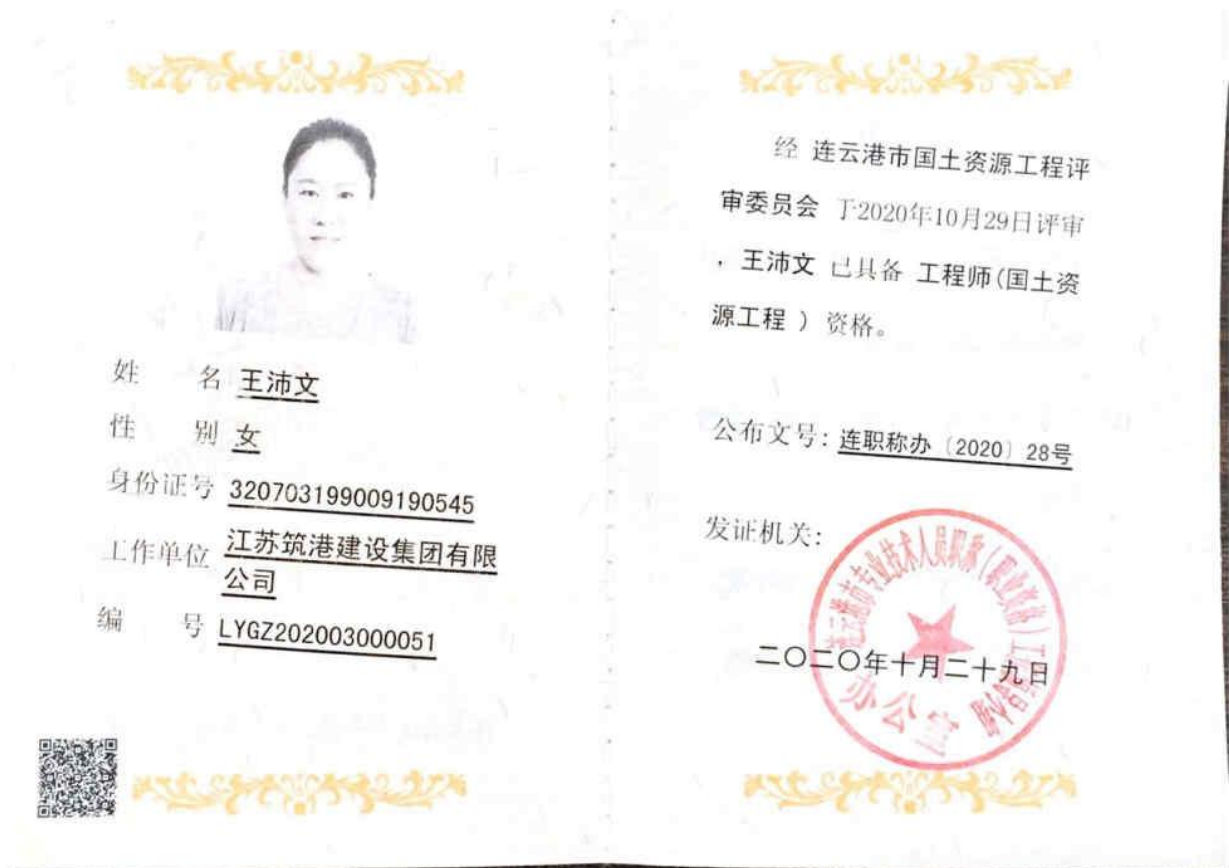 姓 名 王沛文
性 别 女
身份证号 320703199009190545
工作单位 江苏筑港建设集团有限
公司
编 号 LYGZ202003000051
经 连云港市国土资源工程评
审委员会 于2020年10月29日评审
，王沛文 已具备 工程师(国土资
源工程 ) 资格。
公布文号: 连职称办〔2020〕28号
发证机关:
连云港市专业技术人员职称(职业资格)工作领导小组
二〇二〇年十月二十九日
办公室